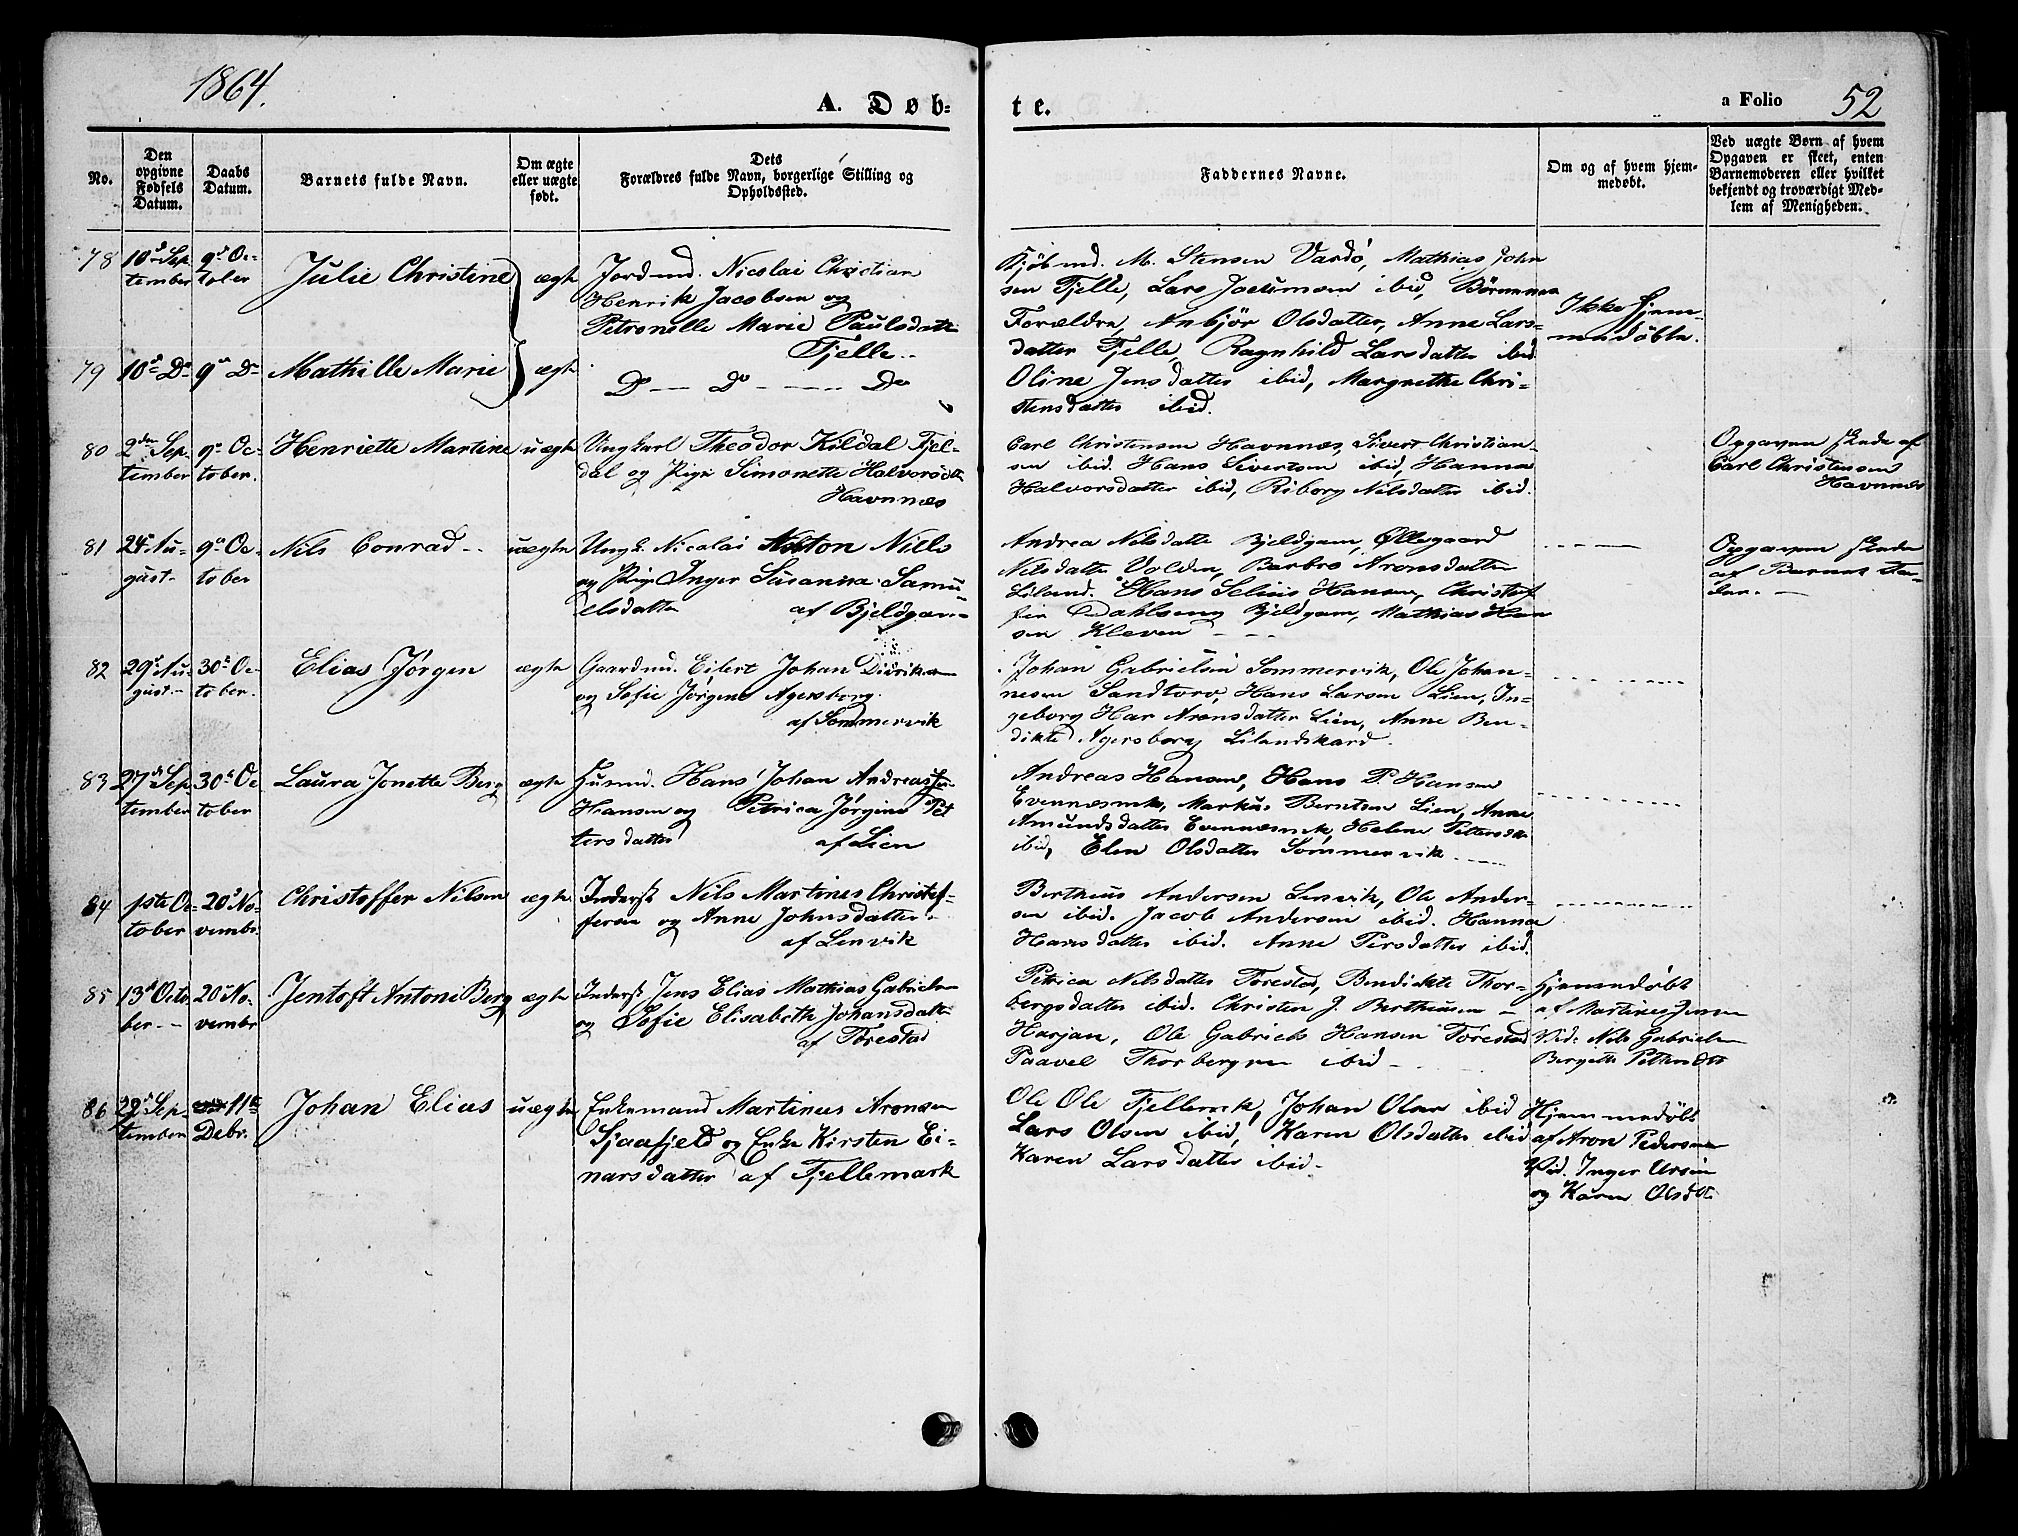 1864.
A. Døb-
te.
a Folio 52
No.
Den
opgivne
Fødsels
Datum.
Daabs
Datum.
Barnets fulde Navn.
Om ægte
eller uægte
født.
Dets
Forældres fulde Navn, borgerlige Stilling og
Opholdssted.
Faddernes Navne.
Om og af hvem hjem-
medøbt.
Ved uægte Børn af hvem
Opgaven er skeet, enten
Barnemoderen eller hvilket
bekjendt og troværdigt Med-
lem af Menigheden.
78
10d Sep
tember
9d Oc-
tober
Julie Christine
ægte
Jordmd. Nicolai Christian
Henrik Jacobsen og
Petronelle Marie Paulsdatter
Fjelle..
Kjøbmd. M. Stensen Vardö, Mathias John
sen Fjelle, Lars ibid, Børnenes
Forældre, Anbjör Olsdatter, Anne Lars-
datter Fjelle, Ragnhild Larsdatter ibid
Oline Jensdatter ibid, Margrethe Chri-
stensdatter ibid.
Ikke hjem-
medøbte.
79
10d Do
9d Do
Mathille Marie
ægte
Do -- Do ---- Do
80
2den Sep-
tember
9d Oc-
tober.
Henriette Martine
uægte
Ungkarl Theodor Kildal Fjel-
dal og Pige Simonette Halvorsdtr
Havnnæs
Carl Christensen Havnnæs, Sivert Christian-
sen ibid. Hans Sivertsen ibid, Hanna
Halvorsdatter ibid, Riborg Nilsdatter ibid.
Opgaven skede af
Carl Christensen
Havnnæs
81
24d Au-
gust-
9d Oc-
tober
Nils Conrad --
uægte
Ungk. Nicolai Ashton Nills
og Pige Inger Susanna Samu-
elsdatter af Bjeldgam-
Andrea Nilsdatter Bjeldgam, Øllegaard
Nilsdatter Volden, Barbro Aronsdatter
Liland. Hans Selius Hansen, Christof
fer Dahlseng Bjeldgam, Mathias Han
sen Kleven ---
Opgaven skede
af Barnets Fa-
der. -
82
29d Au-
gust-
30d Oc-
tober.
Elias Jørgen
ægte
Gaardmd. Eilert Johan Didriksen
og Sofie Jørgine Agersborg.
af Sommervik
Johan Gabrielsen Sommervik, Ole Johan-
nesen Sandtorv, Hans Larsen Lien, In-
geborg Har Aronsdatter Lien, Anne Ben-
dikte Agersborg Lilandskard.
83
27d Sep
tember
30d Oc
tober
Laura Jonette Berg
ægte
Husmd. Hans Johan Andreas
Hansen og Petrica Jørgine Pet
tersdatter af Lien
Andreas Hansen, Hans P. Hansen
Evennæsmk, Markus Berntsen Lien, Anne
Amundsdatter Evennæsmk, Helene Pettersdtr
ibid, Elen Olsdatter Sommervik
84
1ste Oc-
tober
20d No-
vembr.
Christoffer Nilsen
ægte
Inderst Nils Martines Christof-
fersen og Anne Johnsdatter.
af Lenvik
Bertheus Andersen Lenvik, Ole Ander-
sen ibid. Jacob Andersen ibid. Hanna
Hansdatter ibid. Anne Persdatter ibid.
85
13d Octo
ber. -
20d No-
vembr
Jentoft Antoni Berg
ægte
Inderst Jens Elias Mathias Gabrielsen
og Sofie Elisabeth Johansdatter
af Forestad
Petrica Nilsdatter Forestad, Bendikte Thor-
bergsdatter ibid. Christen J. Bertheusen -
Harjan, Ole Gabriels Hansen Forestad
Paavel Thorbergsen ibid -
Hjemmedøbt
af Martines Jensen
Vid: Nils Gabrielsen
Bergitte
86
29d Sep-
tember
11te
Debr.
Johan Elias
uægte
Enkemand Martinus Aronsen
Sjaafjeld og Enke Kirsten Ei-
narsdatter af Fjellemark
Ole Ols Fjellemrk, Johan Olsen ibid
Lars Olsen ibid, Karen Olsdatter ibid
Karen Larsdatter ibid-
Hjemmedøbt
af Aron Pedersen
Vid. Inger Ursin
og Karen Olsdtr